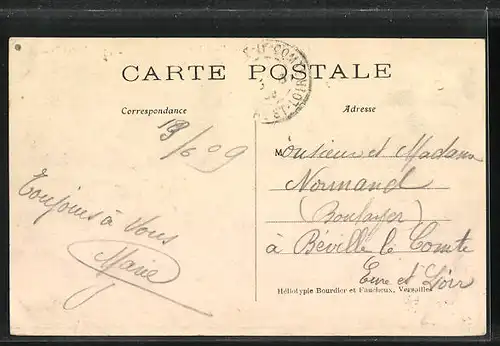 CARTE POSTALE
Correspondance
Adresse
13/6 09
Toujours à Vous
Marie
Monsieur et Madame
Normand
(Boulanger)
à Béville le Comte
Eure et Loir
Héliotypie Bourdier et Faucheux, Versailles